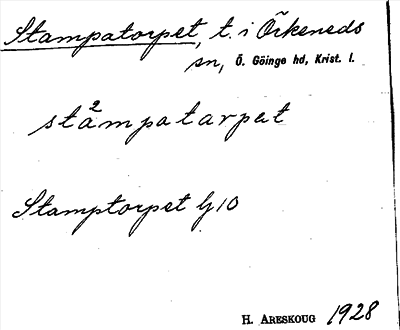 Stampatorpet, t. i Örkeneds
sn, Ö. Göinge hd, Krist. l.
sta²mpatarpet
Stamptorpet Gj 10
H. ARESKOUG 1928